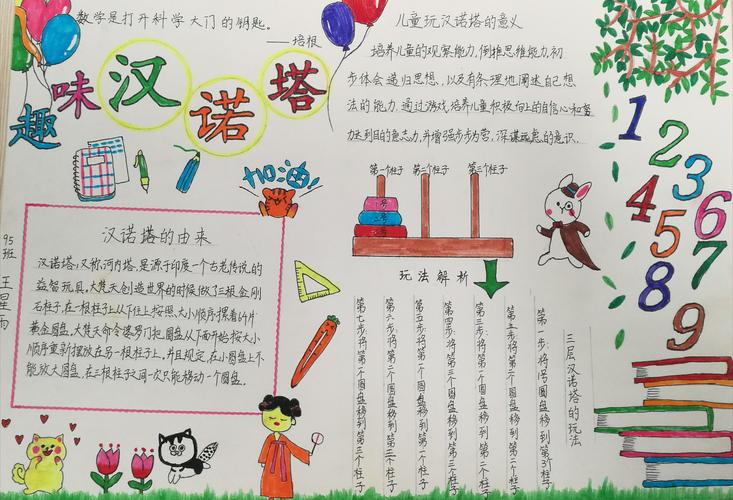 数学是打开科学大门的钥匙。
——培根
趣味汉诺塔
加油!
儿童玩汉诺塔的意义
培养儿童的观察能力,倒掉思维能力,初
步体会递归思想,以及有条理地阐述自己想
法的能力。通过游戏,培养儿童积极向上的自信心和努
力达到目的意志力,并增强步步为营,深谋远虑的意识.
第一个柱子
第二个柱子
第三个柱子
玩法解析
汉诺塔的由来
汉诺塔:又称河内塔,是源于印度一个古老传说的
益智玩具,大梵天创造世界的时候做了三根金刚
石柱子,在一根柱子上从下往上按照大小顺序摞着64片
黄金圆盘,大梵天命令婆罗门把圆盘从下面开始按大小
顺序重新摆放在另一根柱子上,并且规定,在小圆盘上不
能放大圆盘,在三根柱子之间一次只能移动一个圆盘.
95班 王星雨
三层汉诺塔的玩法
第一步:将1号圆盘移到第3个柱子
第三步将第一个圆盘移到第二个柱子
第四步:将第三个圆盘移到第三个柱子
第五步将第一个圆盘移到第一个柱子
第六步:将第二个圆盘移到第三个柱子
第七步:将第一个圆盘移到第三个柱子
1
2
3
4
5
6
7
8
9